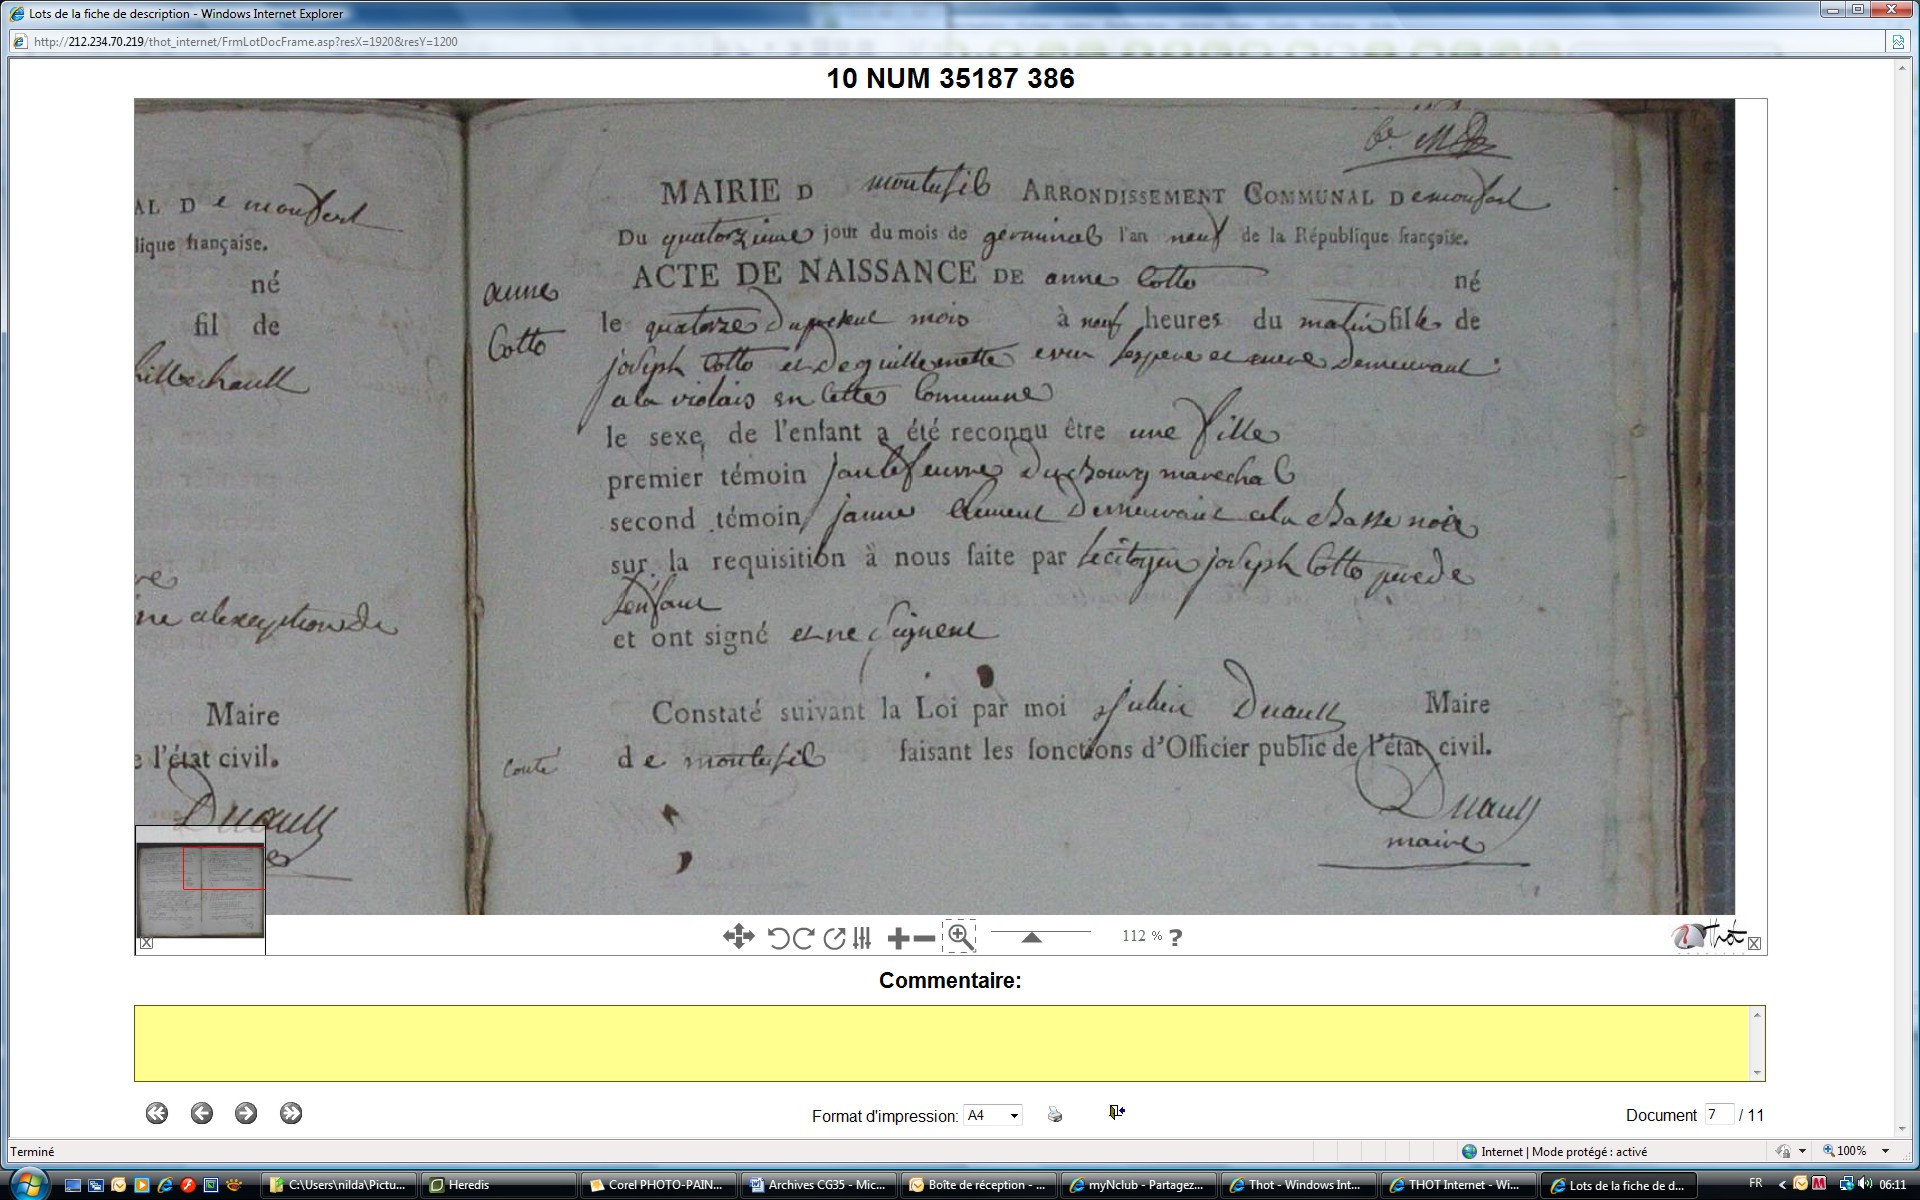 Lots de la fiche de description - Windows Internet Explorer
http://212.234.70.219/thot_internet/FrmLotDocFrame.asp?resX=1920&resY=1200
10 NUM 35187 386
AL D e montfort
lique française.
né
fil de
re
ne alexeption de
Maire
e l'état civil.
Duault
anne
Cotto
MAIRIE D montufil ARRONDISSEMENT COMMUNAL D emonfort
Du quatorzieme jour du mois de germinal l'an neuf de la République française.
ACTE DE NAISSANCE DE anne Cotto né
le quatorze du mois à neuf heures du matin fille de
joseph Cotto et de guillemette mere demeurant
a la violais en cette Commune
le sexe de l'enfant a été reconnu être une fille
premier témoin du bourg marechal
second témoin demeurant a la
sur la requisition à nous faite par le citoyen joseph Cotto pere de
lenfant
et ont signé et ne signent
Constaté suivant la Loi par moi julien Duault Maire
de montufil faisant les fonctions d'Officier public de l'état civil.
Duault
maire
112 % ?
Thot
Commentaire:
Format d'impression: A4
Document 7 / 11
Terminé
Internet | Mode protégé : activé
100%
C:\Users\nilda\Pictu...
Heredis
Corel PHOTO-PAIN...
Archives CG35 - Mic...
Boîte de réception - ...
myNclub - Partagez...
Thot - Windows Int...
THOT Internet - Wi...
Lots de la fiche de d...
FR
06:11